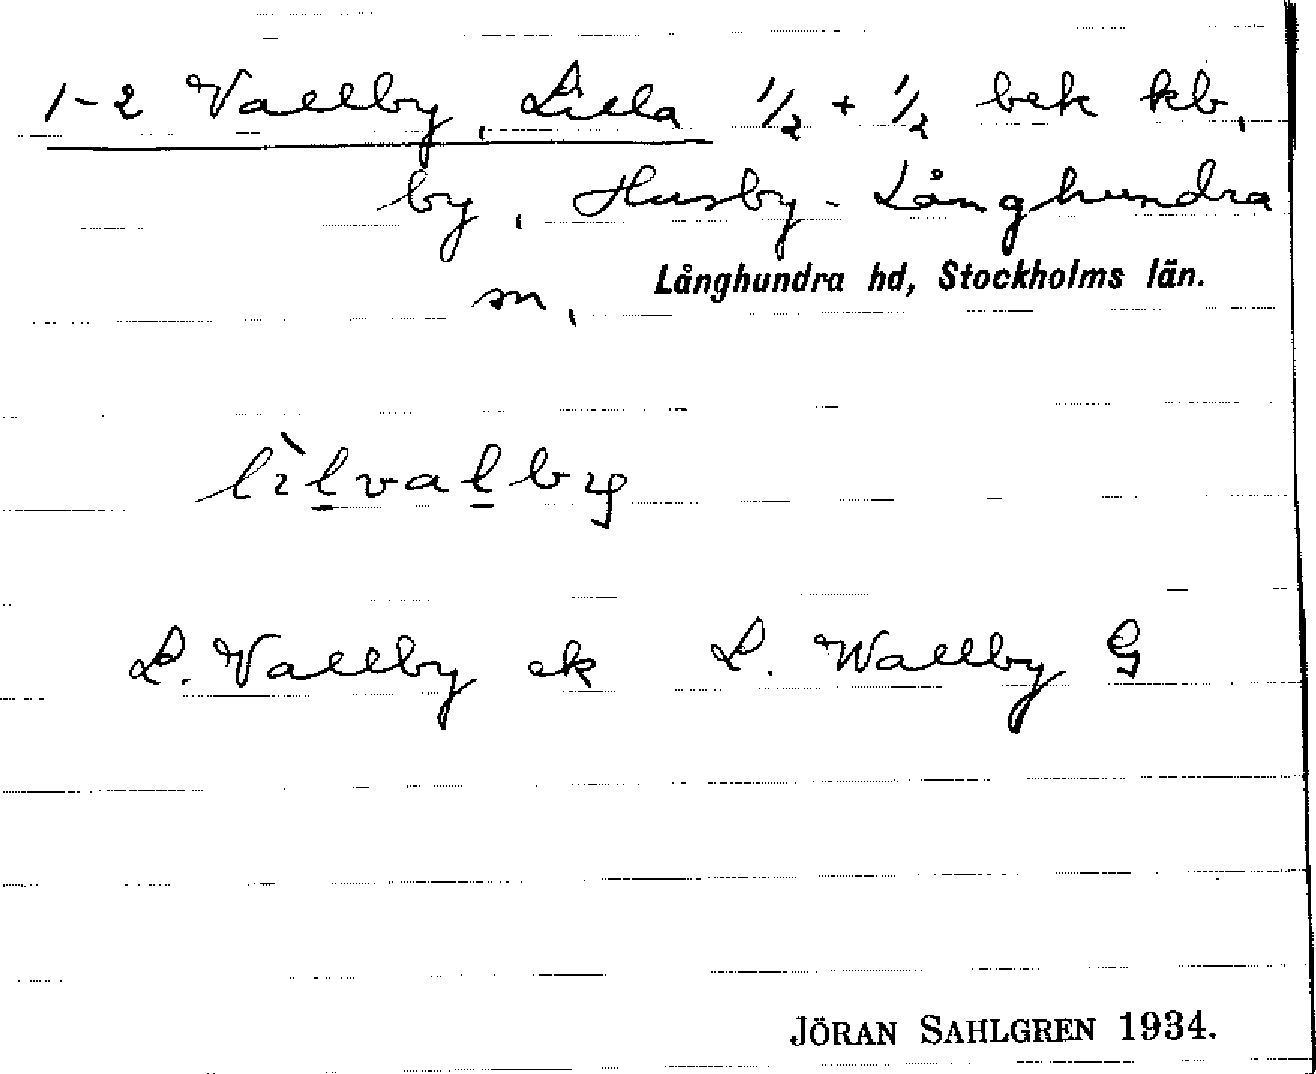 1-2 Vallby, Lilla 1/2 + 1/2 bek kb,
by, Husby-Långhundra
sn, Långhundra hd, Stockholms län.
lìlvalby
L. Vallby ek L. Wallby G
JÖRAN SAHLGREN 1934.